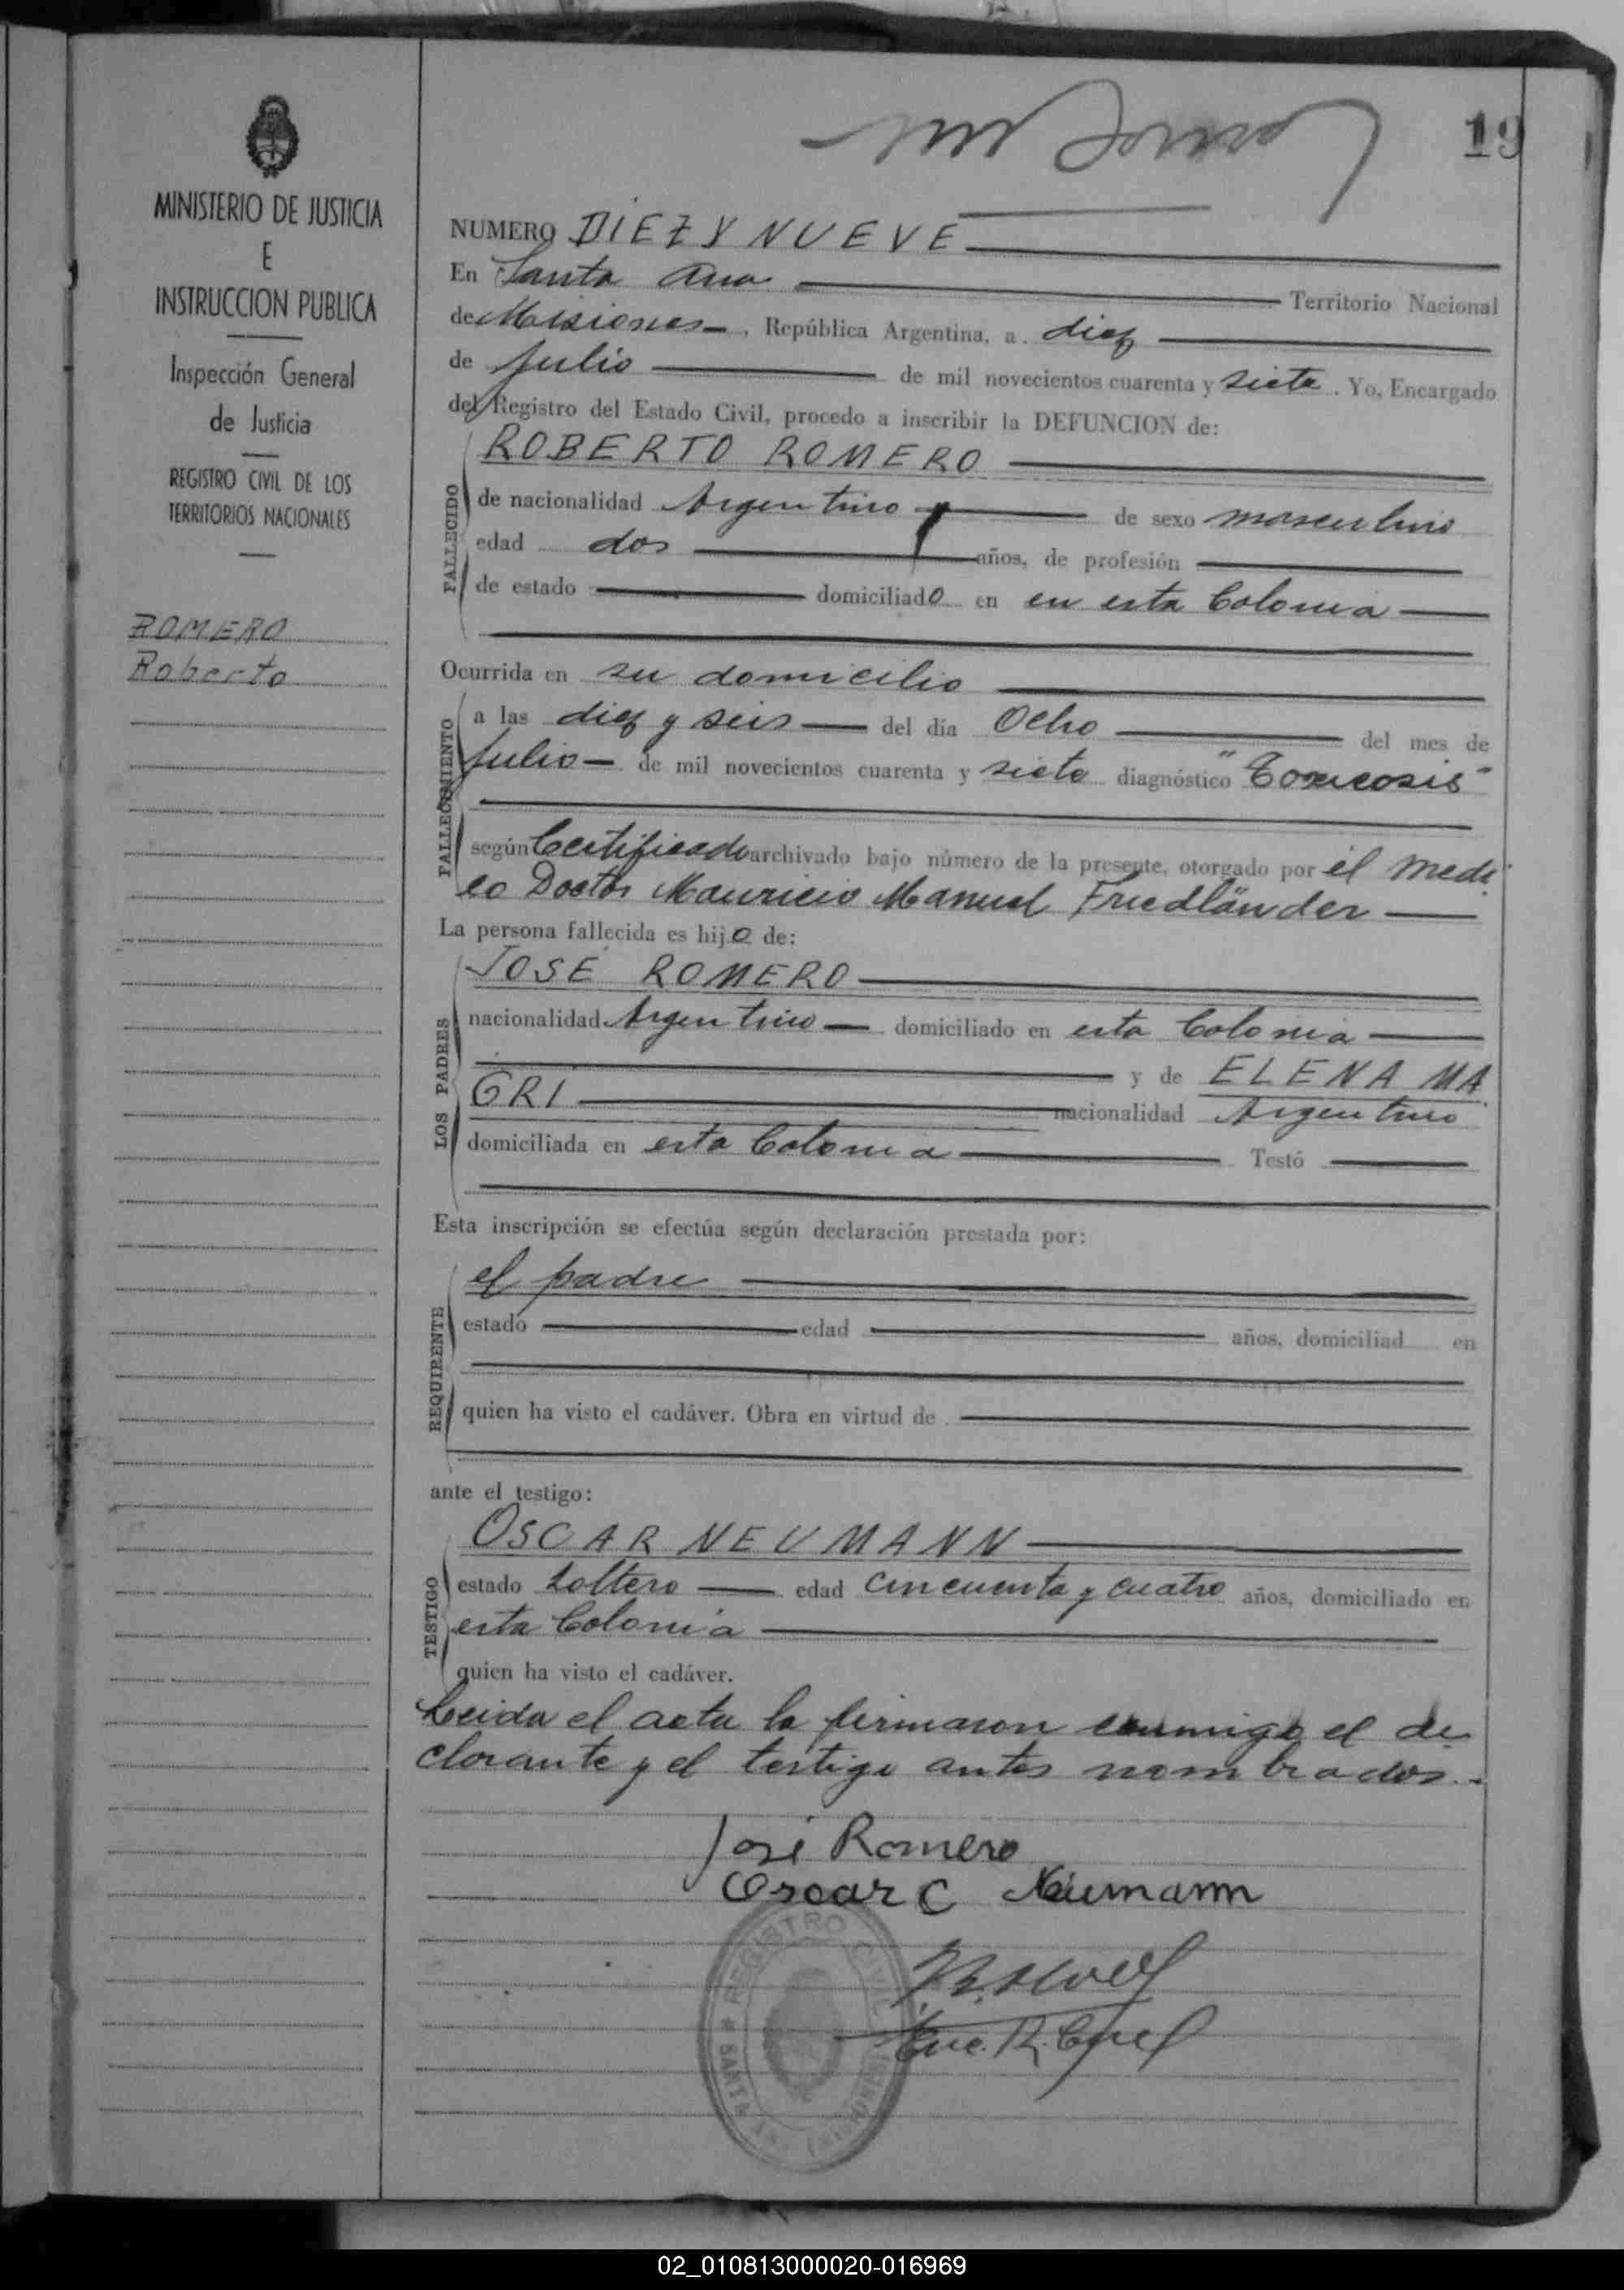 19
MINISTERIO DE JUSTICIA
E
INSTRUCCION PUBLICA
Inspección General
de Justicia
REGISTRO CIVIL DE LOS
TERRITORIOS NACIONALES
ROMERO
Roberto
NUMERO DIEZ Y NUEVE
En Santa Ana Territorio Nacional
de Misiones, República Argentina, a diez
de Julio de mil novecientos cuarenta y siete. Yo, Encargado
del Registro del Estado Civil, procedo a inscribir la DEFUNCION de:
FALLECIDO
ROBERTO ROMERO
de nacionalidad Argentino de sexo masculino
edad dos años, de profesión
de estado domiciliado en en esta Colonia
Ocurrida en su domicilio
FALLECIMIENTO
a las diez y seis del día Ocho del mes de
Julio de mil novecientos cuarenta y siete diagnóstico "Toxicosis"
según Certificado archivado bajo número de la presente, otorgado por el medi
co Doctor Mauricio Manuel Friedländer
La persona fallecida es hijo de:
LOS PADRES
JOSÉ ROMERO
nacionalidad Argentino domiciliado en esta Colonia
y de ELENA MA
GRI nacionalidad Argentino
domiciliada en esta Colonia Testó
Esta inscripción se efectúa según declaración prestada por:
REQUIRENTE
el padre
estado edad años, domiciliad en
quien ha visto el cadáver. Obra en virtud de
ante el testigo:
TESTIGO
OSCAR NEUMANN
estado soltero edad cincuenta y cuatro años, domiciliado en
esta Colonia
quien ha visto el cadáver.
Leida el acta la firmaron conmigo el de
clarante y el testigo antes nombrados.-
José Romero
Oscar C Neumann
Enc. R. Civil
REGISTRO CIVIL
SANTA ANA
02_010813000020-016969